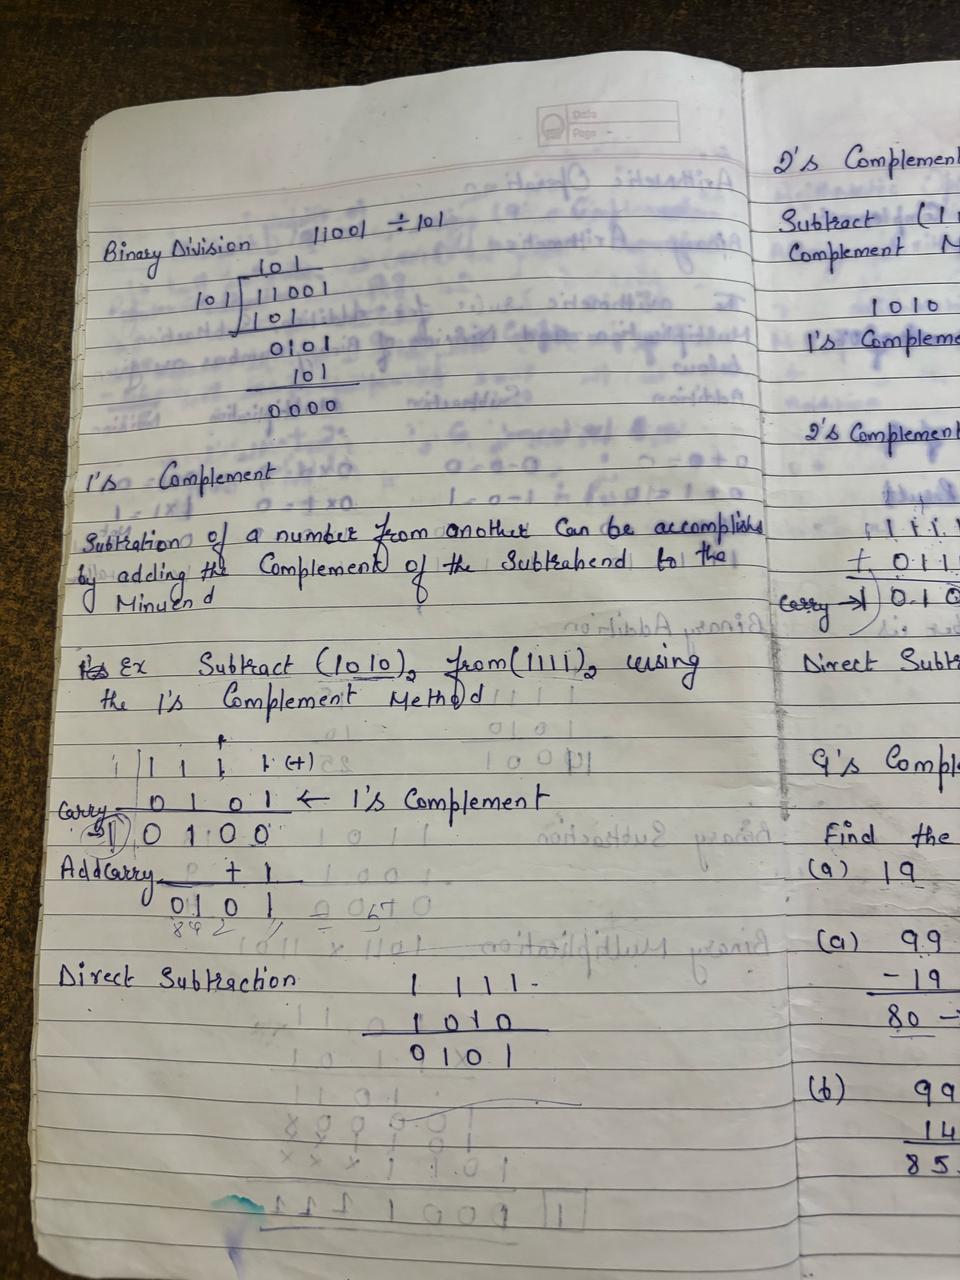 Date
Page
Binary Division 11001 ÷ 101
101
101 11001
101
0101
101
0000
1's Complement
Subtration of a number from another Can be accomplish
by adding the Complement of the Subtrahend to the
Minuend
Ex Subtract (1010)2 from (1111)2 using
the 1's Complement Method
1 1 1 1 (+)
0 1 0 1 ← 1's Complement
Carry → 1 0 1 0 0
Add carry + 1
0 1 0 1
8 4 2 1
Direct Subtraction 1 1 1 1
1 0 1 0
0 1 0 1
2's Complement
Subtract (1
Complement M
1010
1's Compleme
2's Complement
1 1 1 1
+ 0 1 1
Carry → 1 0 1 0
Direct Subt
9's Compl
Find the
(a) 19
(a) 99
- 19
80 -
(b) 99
14
85